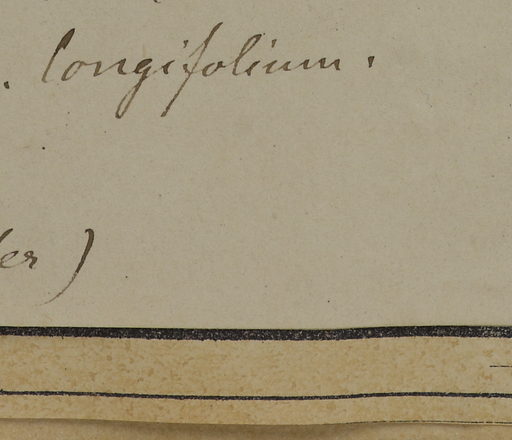 . longifolium.
er)